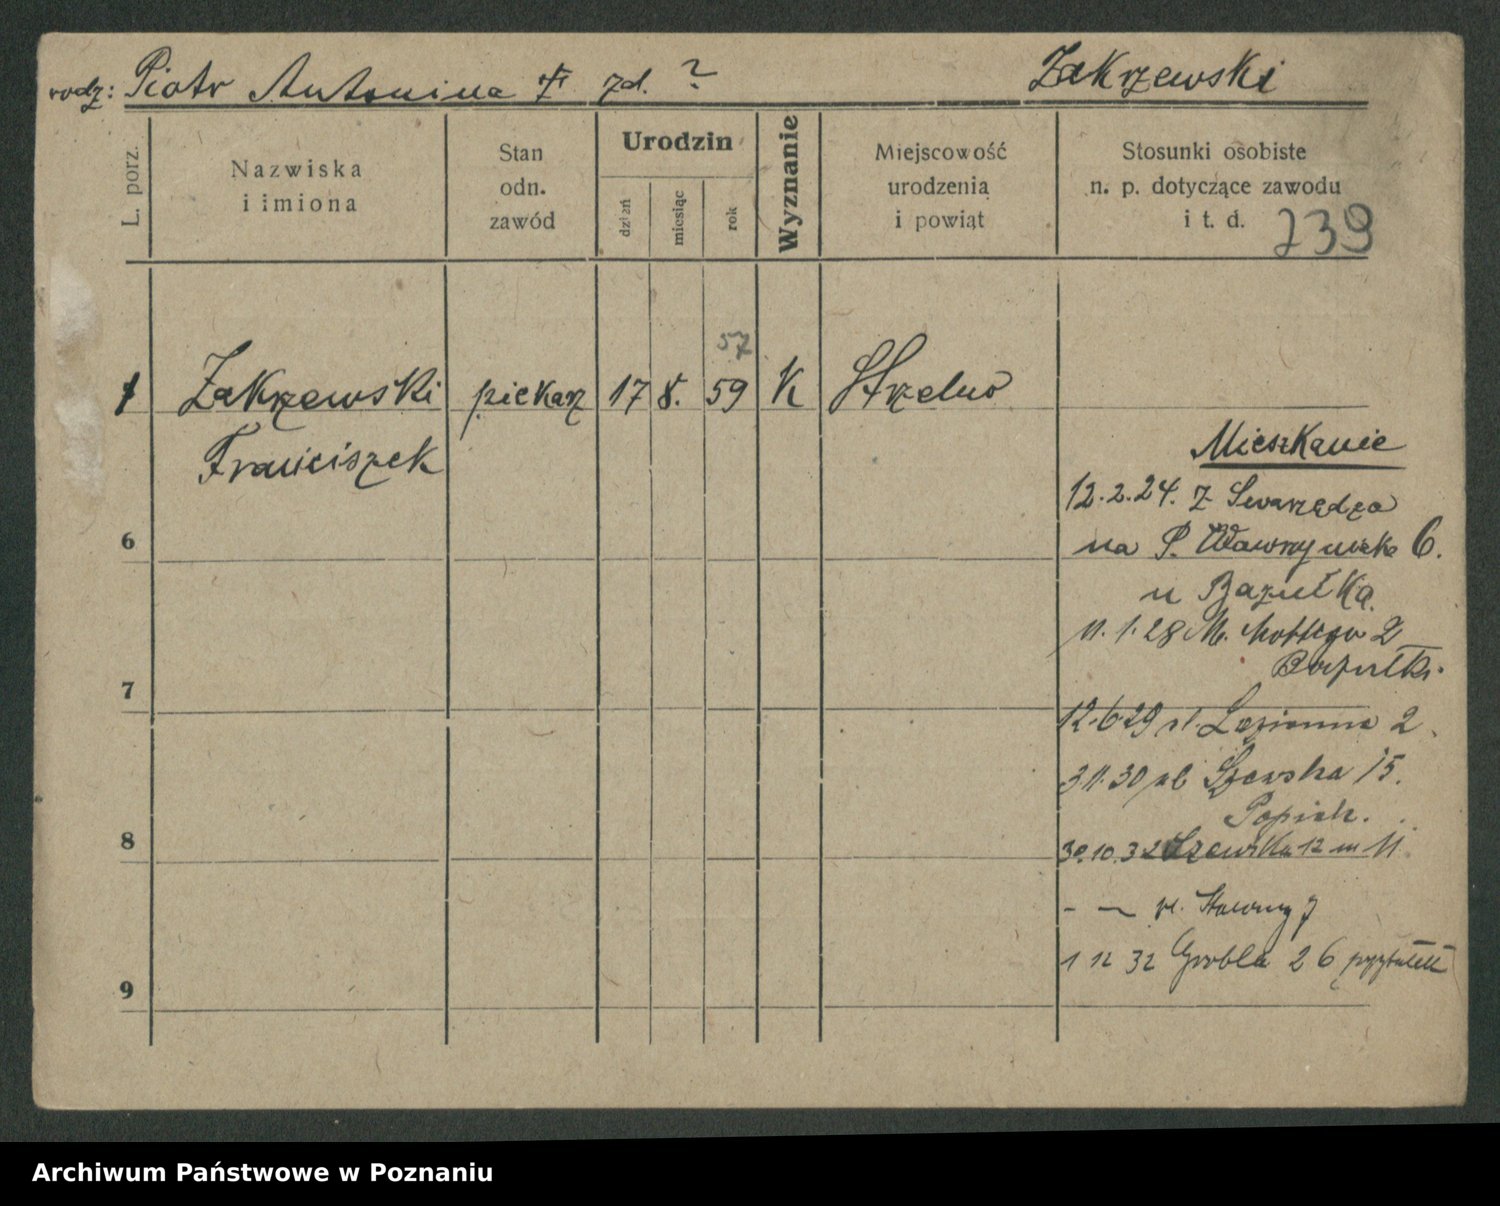 rodz: Piotr Antonina zd. ? Zakrzewski
L. porz.
Nazwiska
i imiona
Stan
odn.
zawód
Urodzin
dzień
miesiąc
rok
Wyznanie
Miejscowość
urodzenia
i powiąt
Stosunki osobiste
n. p. dotyczące zawodu
i t. d.
739
57
1 Zakrzewski piekarz 17 8. 59 K Strzelno
Franciszek
Mieszkanie
12.2.24. z Swarzędza
na P. Wawrzyniaka 6.
u Bazułka
11.1.28 M. Mottego 2
Bazułki
12.6.29 pl. Łazienna 2.
3.11.30 ul Szewska 15.
30.10.32 Szewska 12 m 11
1 12 32 Grobla 26 przytułek
6
7
8
9
Archiwum Państwowe w Poznaniu